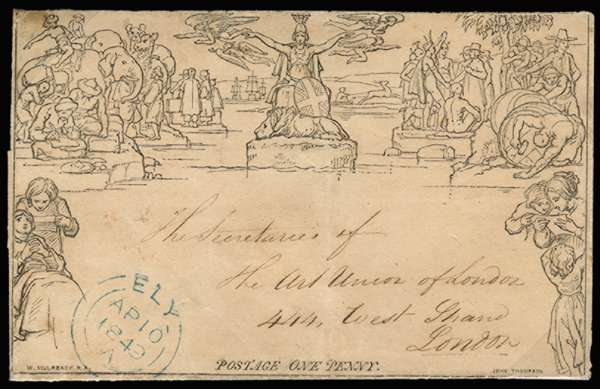 The Secretaries of
The Art Union of London
444, West Strand
London
ELY
AP 10
184
A
POSTAGE ONE PENNY.
W. MULREADY. R.A.
JOHN THOMPSON